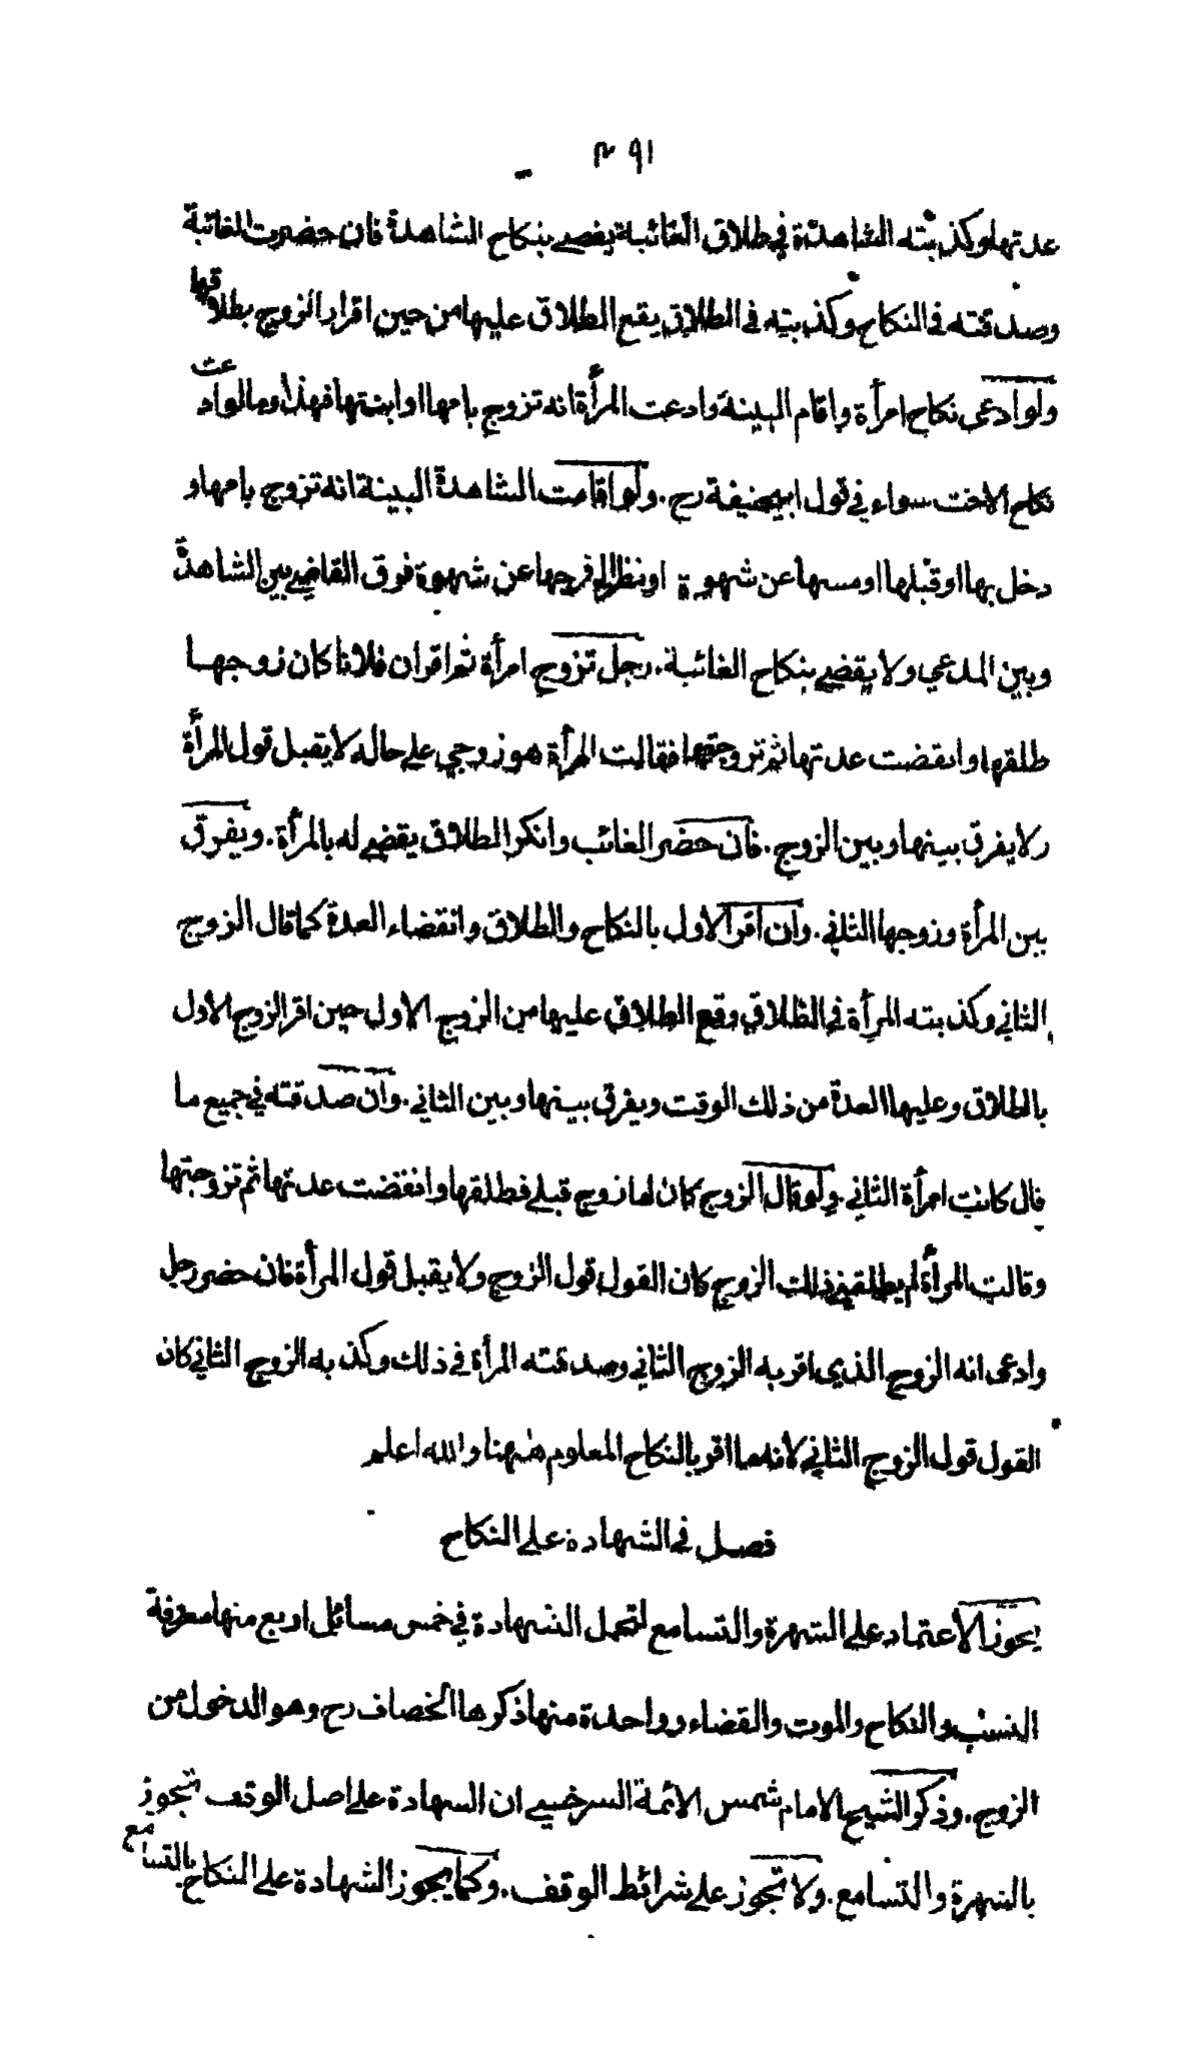 ٣٩١
عدتها وكذبته الشاهدة في طلاق الغائبة يقضي بنكاح الشاهدة فان حضرت الغائبة
وصدقته في النكاح وكذبته في الطلاق يقع الطلاق عليها من حين اقرار الزوج بطلاقها
ولو ادعى نكاح امرأة واقام البينة وادعت المرأة انه تزوج بامها او ابنتها فهذا وما لو ادعت
نكاح الاخت سواء في قول ابيحنيفة رح . ولو اقامت الشاهدة البينة انه تزوج بامها و
دخل بها او قبلها او مسها عن شهوة او نظر الى فرجها عن شهوة فرق القاضي بين الشاهدة
وبين المدعي ولا يقضي بنكاح الغائبة . رجل تزوج امرأة ثم اقر ان فلانا كان زوجها
طلقها وانقضت عدتها ثم تزوجتها فقالت المرأة هو زوجي على حاله لا يقبل قول المرأة
ولا يفرق بينها وبين الزوج . فان حضر الغائب وانكر الطلاق يقضي له بالمرأة . ويفرق
بين المرأة وزوجها الثاني . وان اقر الاول بالنكاح والطلاق وانقضاء العدة كما قال الزوج
الثاني وكذبته المرأة في الطلاق وقع الطلاق عليها من الزوج الاول حين اقر الزوج الاول
بالطلاق وعليها العدة من ذلك الوقت ويفرق بينها وبين الثاني . وان صدقته في جميع ما
قال كانت امرأة الثاني . ولو قال الزوج كان لها زوج قبلي فطلقها وانقضت عدتها ثم تزوجتها
وقالت المرأة لم يطلقني ذلك الزوج كان القول قول الزوج ولا يقبل قول المرأة فان حضر رجل
وادعى انه الزوج الذي اقر به الزوج الثاني وصدقته المرأة في ذلك وكذبه الزوج الثاني كان
القول قول الزوج الثاني لانه ما اقر بالنكاح المعلوم ههنا والله اعلم
فصل في الشهادة على النكاح
يجوز الاعتماد على الشهرة والتسامع لتحمل الشهادة في خمس مسائل اربع منها معرفة
النسب والنكاح والموت والقضاء وواحدة منها ذكرها الخصاف رح وهو الدخول من
الزوج . وذكر الشيخ الامام شمس الائمة السرخسي ان الشهادة على اصل الوقف تجوز
بالشهرة والتسامع . ولا تجوز على شرائط الوقف . وكما يجوز الشهادة على النكاح بالتسامع